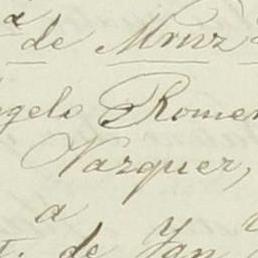 a de Mruz
ngelo Romer
Vazquer,
a
t. de Jan